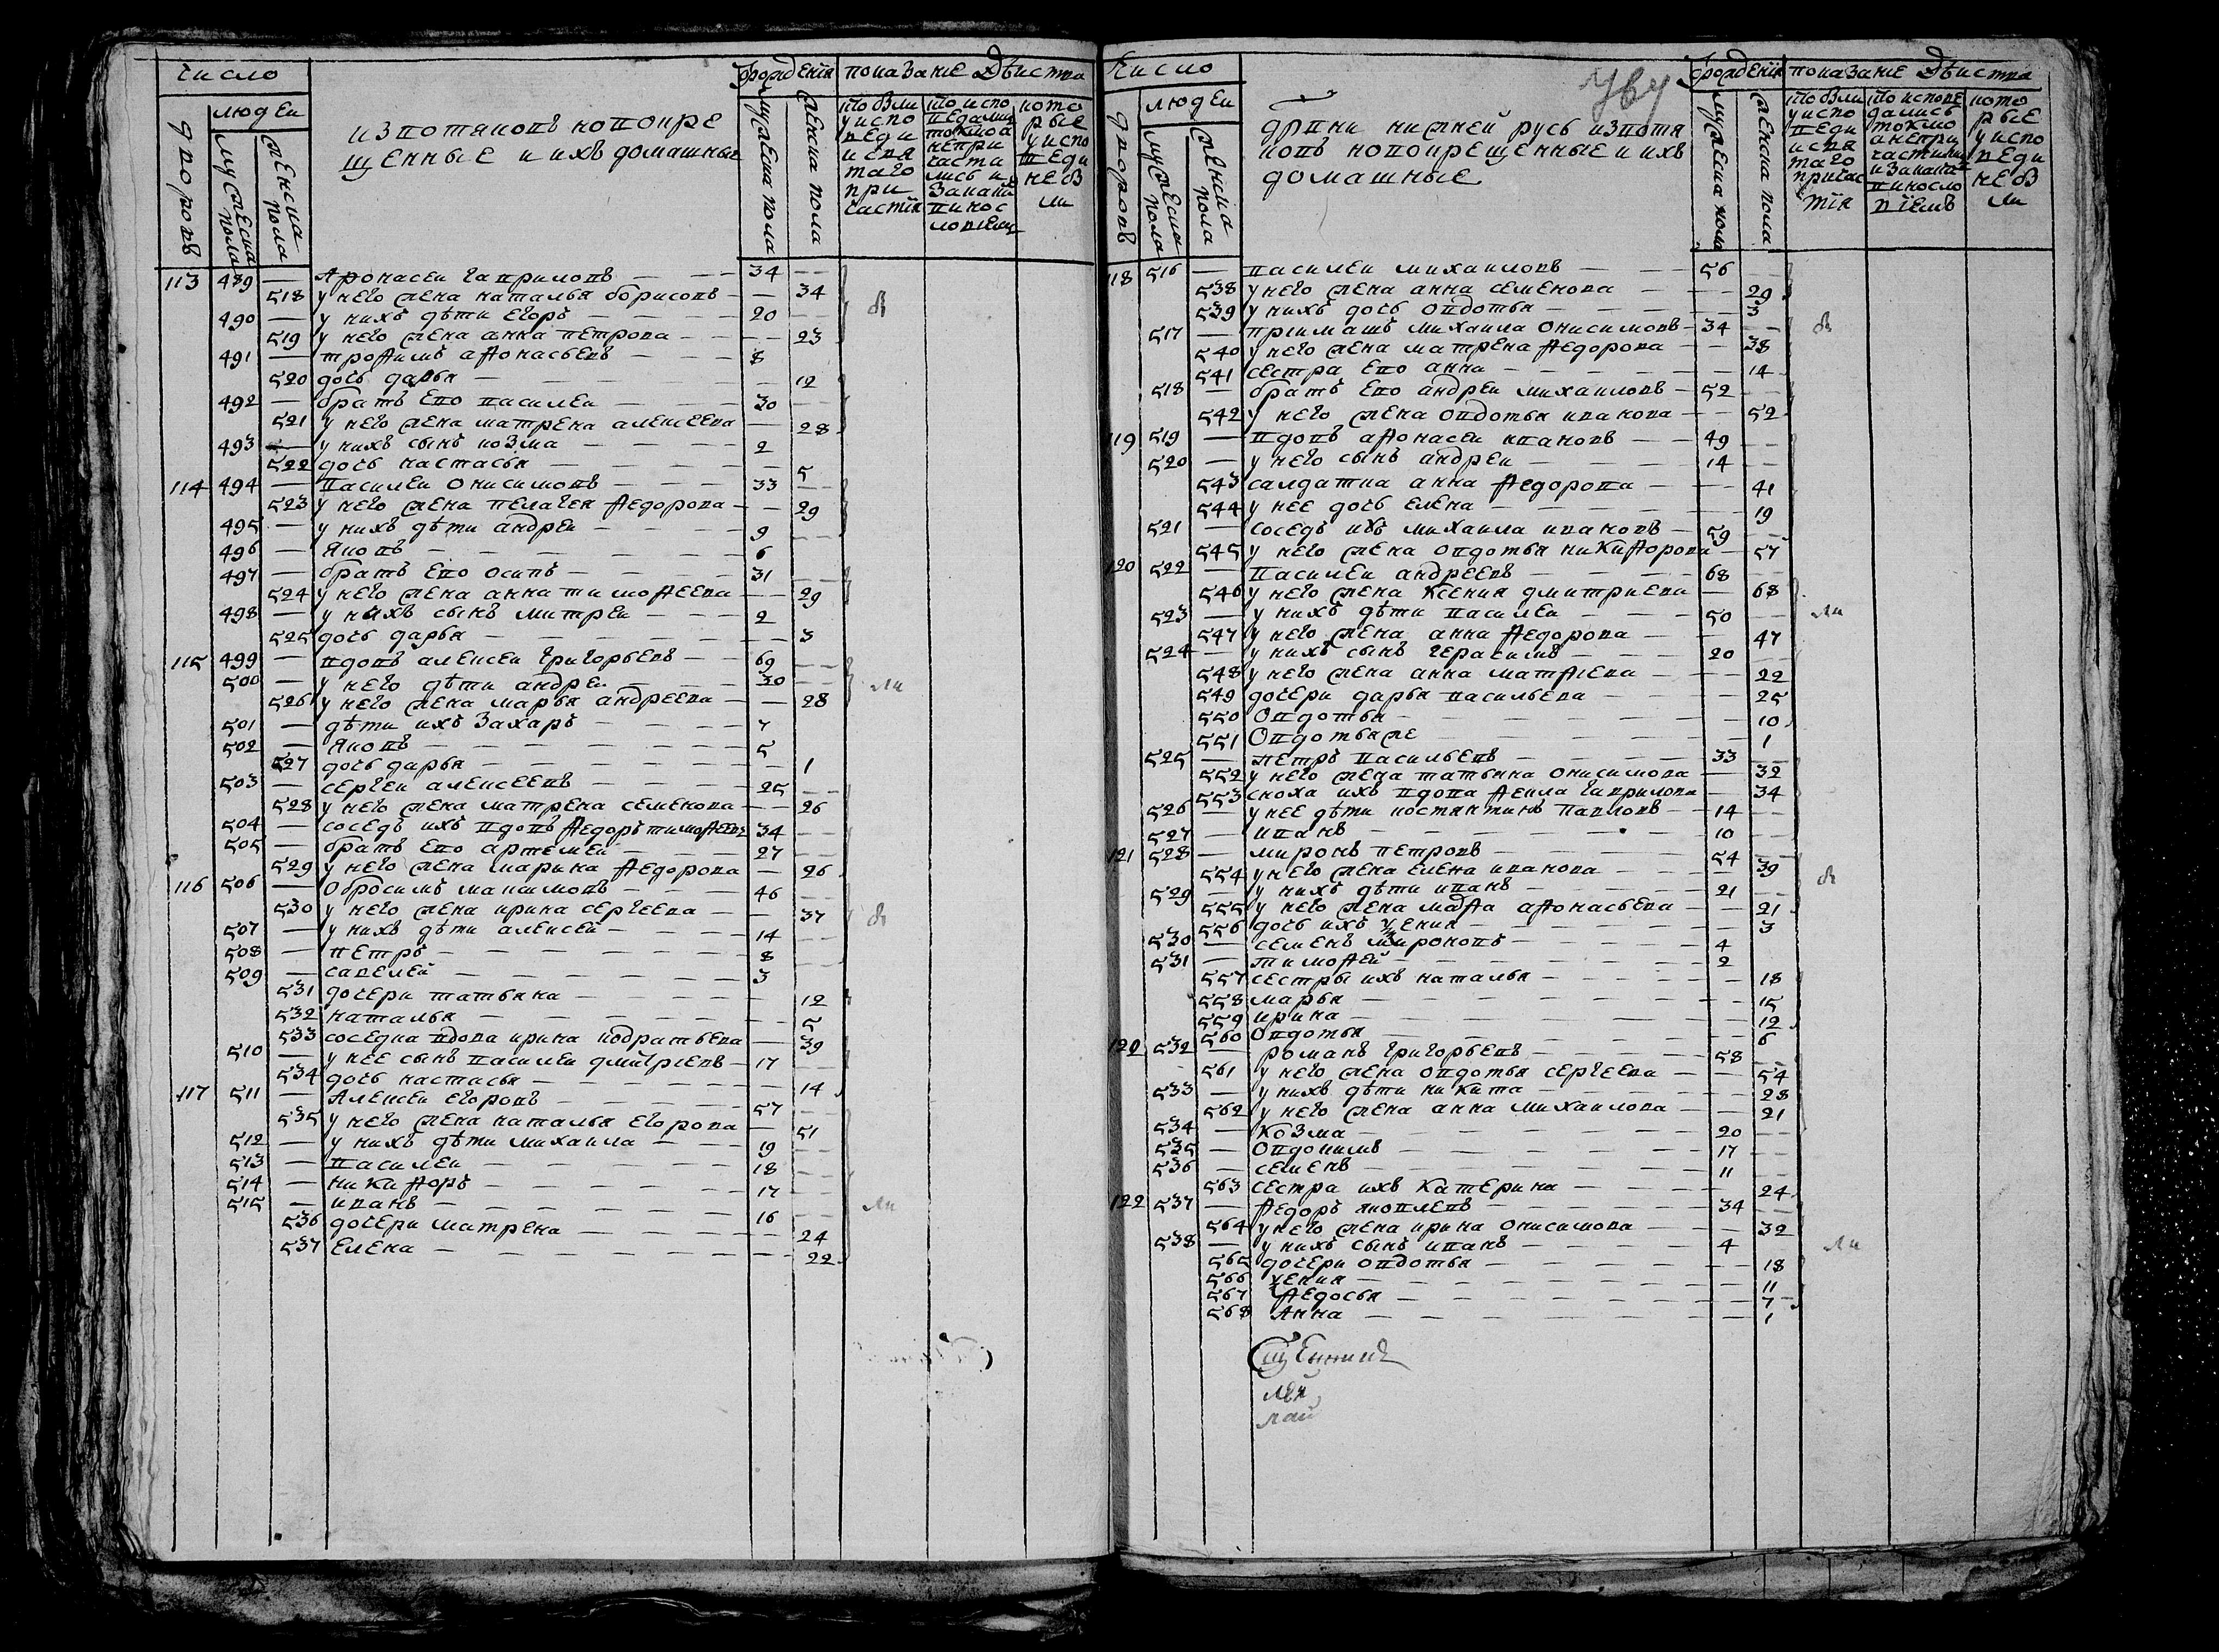 число
людеи
дворовъ
мужеска пола
женска пола
изпотяковъ новокре
щенные и ихъ домашные
Ѿрождения
мужеска пола
женска пола
показание Действа
кто были
у испо
веди
и свя
таго
при
частия
кто испо
ведалис
токмо а
непри
части
лись и
закакимъ
винос
ловиемъ
кото
рые
у испо
веди
небы
ли
113 489 — Афонасеи гавриловъ — — — 34 — —
518 у него жена наталья борисовъ — — 34
490 — у нихъ дѣти егоръ — — — — 20 — —
519 у него жена анна петрова — — — — 23
491 — трофимъ афонасьевъ — — — 8
520 дочь дарья — — — — — 12
492 — братъ ево василеи — — — 30 — —
521 у него жена матрена алексеева — 28
493 — у нихъ сынъ козма — — — — 2
522 дочь настасья — — — — — — 5
114 494 — Василеи онисимовъ — — — 33 — —
523 у него жена пелагея федорова — — 29
495 — у нихъ дѣти андреи — — — — 9 — —
496 — яковъ — — — — — — 6
497 — братъ ево осипъ — — — — 31 — —
524 у него жена анна тимофеева — — 29
498 — у нихъ сынъ митреи — — — 2
525 дочь дарья — — — — — — — 3
115 499 — вдовъ алексеи григорьевъ — — 69 — —
500 — у него дѣти андреи — — — 30 — —
526 у него жена марья андреева — — 28
501 — дѣти ихъ захаръ — — — — 7
502 — яковъ — — — — — — 5
527 дочь дарья — — — — — — — 1
503 — сергеи алексеевъ — — — — 25 — —
528 у него жена матрена семенова — — 26
504 — соседъ ихъ вдовъ федоръ тимофеевъ 34 — —
505 — братъ ево артемеи — — — 27 — —
529 у него жена марина федорова — 26
116 506 — обросимъ максимовъ — — — 46 — —
530 у него жена ирина сергеева — — 37
507 — у нихъ дѣти алексеи — — — — 14 — —
508 — петръ — — — — — — 8
509 — савелеи — — — — — — 3
531 дочери татьяна — — — — — — 12
532 наталья — — — — — — — 5
533 соседка вдова ирина кодратьева — 39
510 — у нее сынъ василеи дмитриевъ — 17 — —
534 дочь настасья — — — — — — 14
117 511 — Алексеи егоровъ — — — — 57 — —
535 у него жена наталья егорова — 51
512 — у нихъ дѣти михаила — — — 19 — —
513 — василеи — — — — — — 18 — —
514 — никифоръ — — — — — 17 — —
515 — иванъ — — — — — — 16 — —
536 дочери матрена — — — — — 24
537 елена — — — — — — — — 22
число
людеи
дворовъ
мужеска пола
женска пола
дрвни нижнеи русь изпотя
ковъ новокрещенные и ихъ
домашные
Ѿрождения
мужеска пола
женска пола
показание Действа
кто были
у испо
веди
и свя
таго
причас
тия
кто испове
дались
токмо
а непри
частили
и закаки
виносло
виемъ
кото
рые
у испо
веди
небы
ли
118 516 — василеи михаиловъ — — — 56 — —
538 у него жена анна семенова — — — 29
539 у нихъ дочь овдотья — — — — 3
517 — приимашъ михаила онисимовъ — 34 — —
540 у него жена матрена федорова — — 38
541 сестра ево анна — — — — — — 14
518 — братъ ево андреи михаиловъ — 52 — —
542 у него жена овдотья иванова — — 52
119 519 — вдовъ афонасеи ивановъ — — 49 — —
520 — у него сынъ андреи — — — 14 — —
543 салдатка анна федорова — — — 41
544 у нее дочь елена — — — — — 19
521 — соседъ ихъ михаила ивановъ — 59 — —
545 у него жена овдотья никифорова — 57
120 522 — василеи андреевъ — — — — 68 — —
546 у него жена ксения дмитриева — 68
523 — у нихъ дѣти василеи — — — — 50 — —
547 у него жена анна федорова — — 47
524 — у нихъ сынъ герасимъ — — — 20 — —
548 у него жена анна матфиева — — — 22
549 дочери дарья васильева — — — 25
550 овдотья — — — — — — — 10
551 овдотья же — — — — — — 1
525 — петръ васильевъ — — — — 33 — —
552 у него жена татьяна онисимова — 32
553 сноха ихъ вдова фекла гаврилова — 34
526 — у нее дѣти костянтинъ павловъ — 14 — —
527 — иванъ — — — — — — 10 — —
121 528 — миронъ петровъ — — — — 54 — —
554 у него жена елена иванова — — — 39
529 — у нихъ дѣти иванъ — — — — 21 — —
555 у него жена мафа афонасьева — — 21
556 дочь ихъ — — — — — — 3
530 — семенъ мироновъ — — — — 4
531 — тимофеи — — — — — — 2
557 сестры ихъ наталья — — — — — 18
558 марья — — — — — — — 15
559 ирина — — — — — — — 12
560 овдотья — — — — — — — 6
122 532 — романъ григорьевъ — — — — 58 — —
561 у него жена овдотья сергеева — — 54
533 — у нихъ дѣти никита — — — — 28
562 у него жена анна михаилова — — 21
534 — козма — — — — — — 20 — —
535 — овдокимъ — — — — — 17 — —
536 — семенъ — — — — — — 11 — —
563 сестра ихъ катерина — — — — 24
122 537 — федоръ яковлевъ — — — — 34 — —
564 у него жена ирина онисимова — — — 32
538 — у нихъ сынъ иванъ — — — — 4 — —
565 дочери овдотья — — — — — — 18
566 — — — — — — — 11
567 федосья — — — — — — — 7
568 Анна — — — — — — — 1